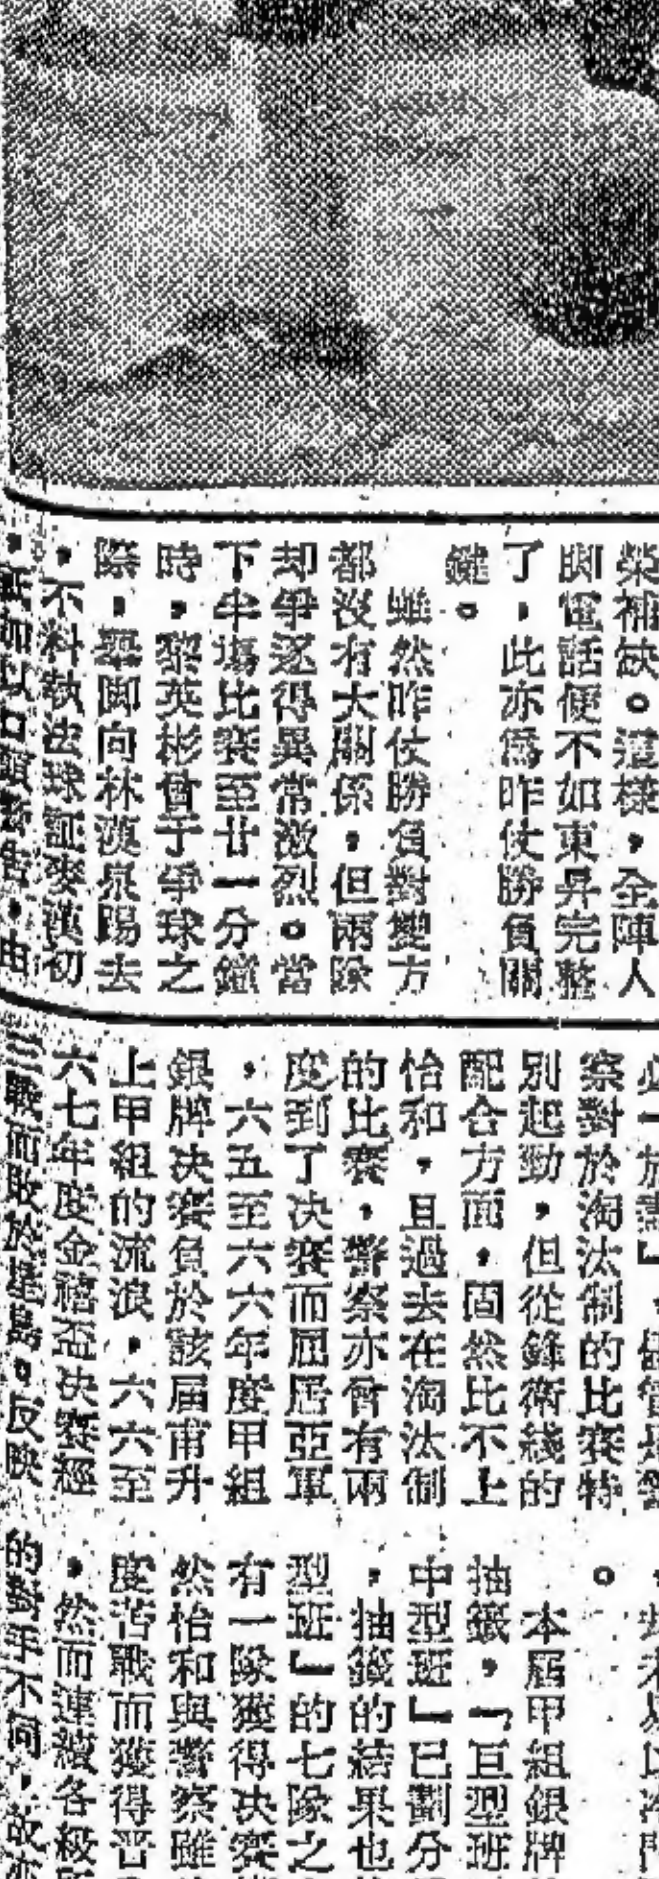 榮補缺。這樣，全陣人
脚電話便不如東昇完整
了，此亦爲昨仗勝負關
鍵。
雖然昨仗勝負對雙方
都沒有大關係，但兩隊
却爭逐得異常激烈。當
下半塲比賽至廿一分鐘
時，黎英彬曾于爭球之
際，舉脚向林漢泉踢去
，不料執法球証麥漢初
，祇加以口頭警告，由
必一於書」，儘管是警
察對於淘汰制的比賽特
別起勁，但從鋒衛綫的
配合方面，固然比不上
怡和，且過去在淘汰制
的比賽，警察亦曾有兩
度到了决賽而屈居亞軍
，六五至六六年度甲組
銀牌决賽負於該届甫升
上甲組的流浪，六六至
六七年度金禧盃决賽經
三戰而敗於星島。反映
。
本届甲組銀牌
抽籤，「巨型班
中型班」已劃分
，抽籤的結果也
型班」的七隊之
有一隊獲得决賽
然怡和與警察雖
度苦戰而獲得晋
，然而連續各級
的對手不同，故